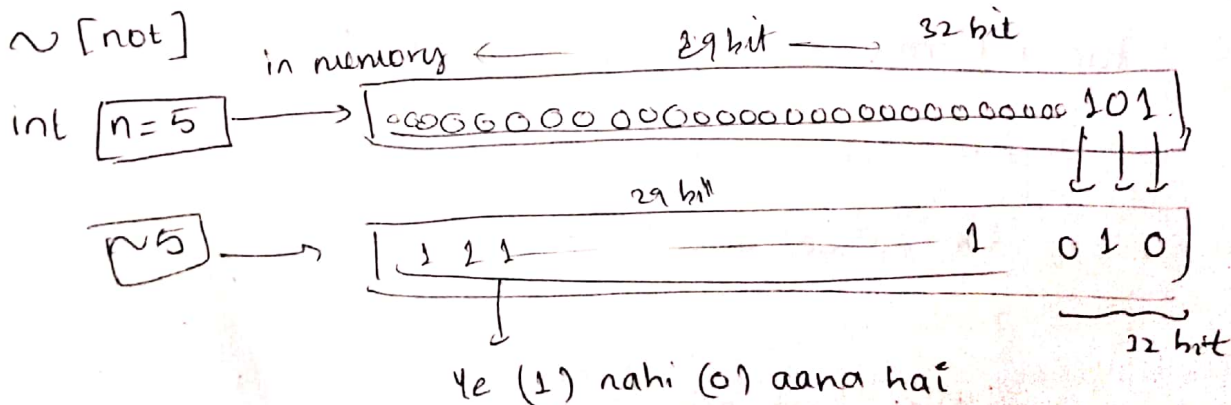 ~ [not]
in memory ← 29 bit — 32 bit
int n = 5 → 00000000000000000000000000000 101
29 bit
~5 → 1 1 1 — 1 0 1 0
32 bit
Ye (1) nahi (0) aana hai